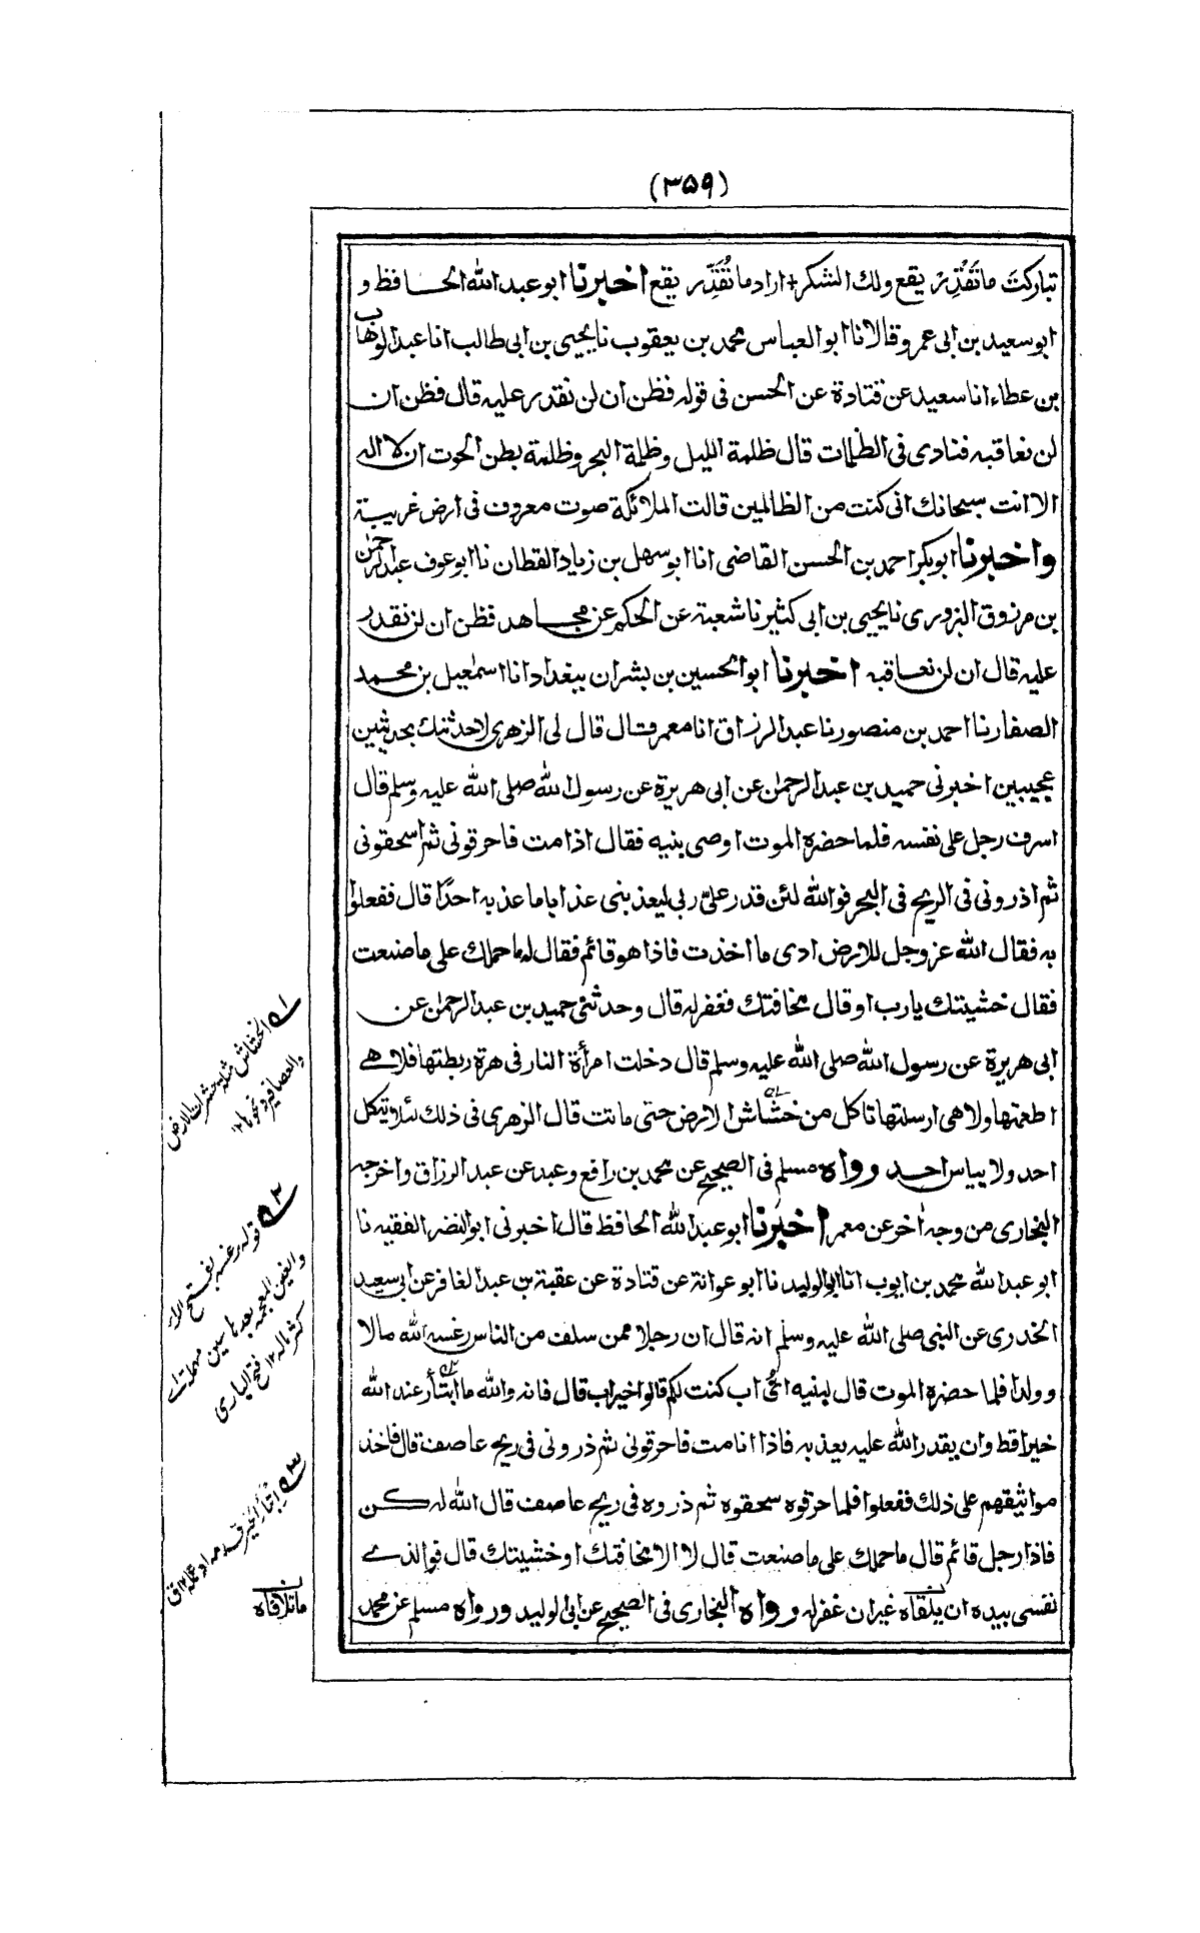 (۳۵۹)
تباركتَ ما تَقْدِرْ يقع ولك الشكر + اراد ما تُقَدِّر يقع اخبرنا ابو عبد الله الحافظ و
ابو سعيد بن ابى عمرو قالا نا ابو العباس محمد بن يعقوب نا يحيى بن ابى طالب انا عبد الوهاب
بن عطاء انا سعيد عن قتادة عن الحسن فى قوله فظن ان لن نقدر عليه قال فظن ان
لن نعاقبه فنادى فى الظلمات قال ظلمة الليل وظلمة البحر وظلمة بطن الحوت ان لا اله
الا انت سبحانك انى كنت من الظالمين قالت الملائكة صوت معروف فى ارض غريبة
واخبرنا ابو بكر احمد بن الحسن القاضى انا ابو سهل بن زياد القطان نا ابو عوف عبد الرحمن
بن مرزوق البزورى نا يحيى بن ابى كثير نا شعبة عن الحكم عن مجاهد فظن ان لن نقدر
عليه قال ان لن نعاقبه اخبرنا ابو الحسين بن بشران ببغداد انا اسمعيل بن محمد
الصفار نا احمد بن منصور نا عبد الرزاق انا معمر قال قال لى الزهرى لاحدثنك بحديثين
عجيبين اخبرنى حميد بن عبد الرحمٰن عن ابى هريرة عن رسول الله صلى الله عليه وسلم قال
اسرف رجل على نفسه فلما حضره الموت اوصى بنيه فقال اذا مت فاحرقونى ثم اسحقونى
ثم اذرونى فى الريح فى البحر فوالله لئن قدر علىّ ربى ليعذبنى عذابا ما عذبه احدًا قال ففعلوا
به فقال الله عز وجل للارض ادى ما اخذت فاذا هو قائم فقال له ما حملك على ما صنعت
فقال خشيتك يا رب او قال مخافتك فغفر له قال وحدثنى حميد بن عبد الرحمٰن عن
ابى هريرة عن رسول الله صلى الله عليه وسلم قال دخلت امرأة النار فى هرة ربطتها فلا هى
اطعمتها ولا هى ارسلتها تاكل من خشاش الارض حتى ماتت قال الزهرى فى ذلك لئلا يتكل
احد ولا يياس احد رواه مسلم فى الصحيح عن محمد بن رافع وعبد عن عبد الرزاق واخرجه
البخارى من وجه اٰخر عن معمر اخبرنا ابو عبد الله الحافظ قال اخبرنى ابو النضر الفقيه نا
ابو عبد الله محمد بن ايوب انا ابو الوليد نا ابو عوانة عن قتادة عن عقبة بن عبد الغافر عن ابى سعيد
الخدرى عن النبى صلى الله عليه وسلم انه قال ان رجلا ممن سلف من الناس رغسه الله مالا
وولدا فلما حضره الموت قال لبنيه اىُّ اب كنت لكم قالوا خير اب قال فانه والله ما ابتأر عند الله
خيرا قط وان يقدر الله عليه يعذبه فاذا انا مت فاحرقونى ثم ذرونى فى ريح عاصف قال فاخذ
مواثيقهم على ذلك ففعلوا فلما حرقوه سحقوه ثم ذروه فى ريح عاصف قال الله له كن
فاذا رجل قائم قال ما حملك على ما صنعت قال لا الا مخافتك او خشيتك قال فوالذى
نفسى بيده ان يلقاه غير ان غفر له ورواه البخارى فى الصحيح عن ابى الوليد ورواه مسلم عن محمد
١ الخشاش مثلثة حشرات الارض
والعصافير ونحوها ١٢
٢ قوله رغسه بفتح الراء
والغين المعجمة بعدها سين مهملة اى
كثر ماله ١٢ فتح البارى
٣ ابتأر الخير قدمه او عمله ١٢ ق
ما تلافاه